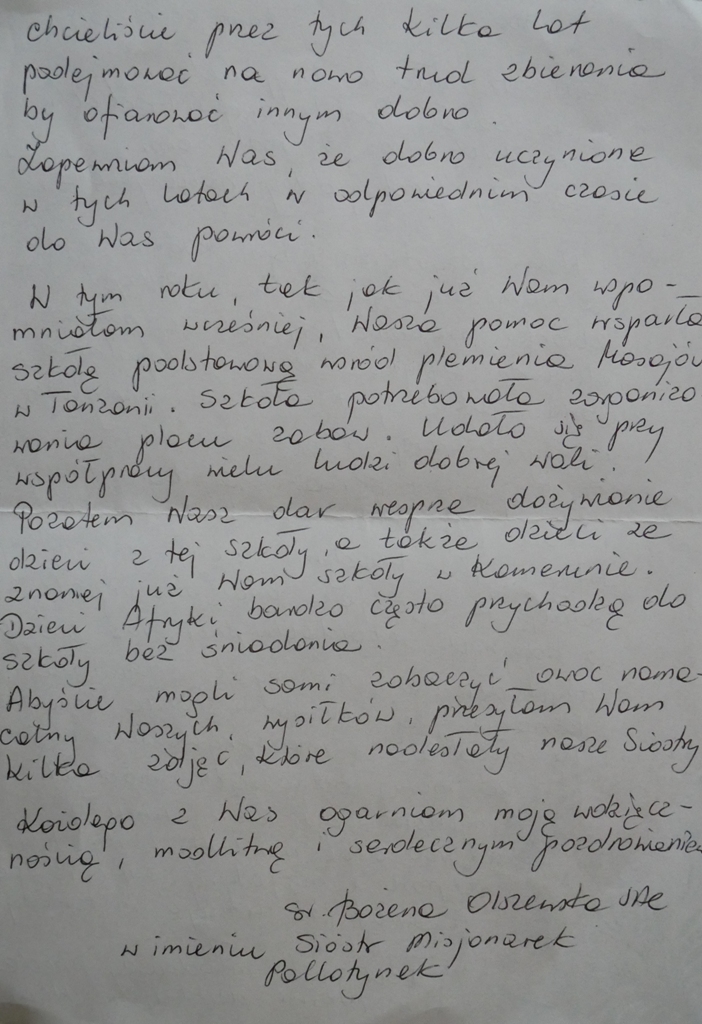 chcieliście przez tych kilka lat
podejmować na nowo trud zbierania
by ofiarować innym dobro.
Zapewniam Was, że dobro uczynione
w tych latach w odpowiednim czasie
do Was powróci.
W tym roku, tak jak już Wam wspo-
mniałam wcześniej, Wasza pomoc wsparła
szkołę podstawową wśród plemienia Masajów
w Tanzanii. Szkoła potrzebowała zorganizo
wania placu zabaw. Udało się przy
współpracy wielu ludzi dobrej woli.
Pozatem Wasz dar wesprze dożywianie
dzieci z tej szkoły, a także dzieci ze
znanej już Wam szkoły w Kamerunie.
Dzieci Afryki bardzo często przychodzą do
szkoły bez śniadania.
Abyście mogli sami zobaczyć owoc nama-
calny Waszych wysiłków, przesyłam Wam
kilka zdjęć, które nadesłały nasze Siostry
Każdego z Was ogarniam moją wdzięcz-
nością, modlitwą i serdecznym pozdrowieniem
sr. Bożena Olszewska SAC
w imieniu Sióstr Misjonarek
Pallotynek